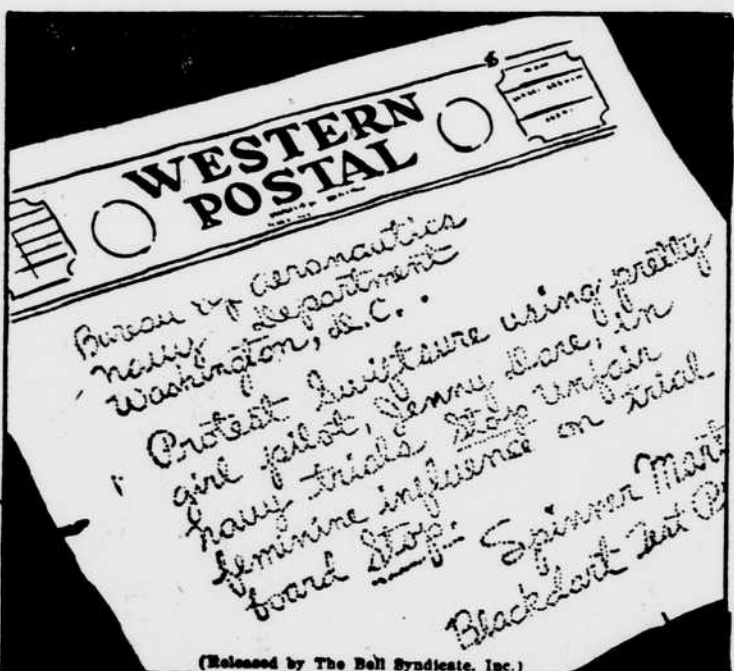 WESTERN
POSTAL
Bureau of Aeronautics
Navy Department
Washington, D.C.
Protest Swiftsure using pretty
girl pilot, Jenny Dare, in
navy trials Stop Unfair
feminine influence on trial
board Stop. Spinner Mart
Blackdart Test P
(Released by The Bell Syndicate, Inc.)